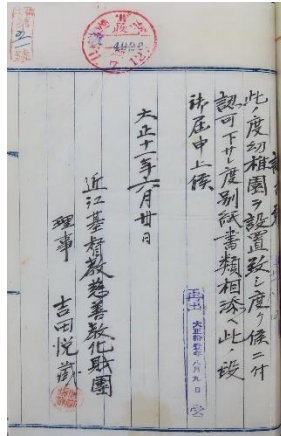 此ノ度幼稚園ヲ設置致シ度ク候ニ付
認可下サレ度別紙書類相添ヘ此ノ段
御届申上候
大正十一年六月廿日
近江基督教慈善教化財團
理事 吉田悦蔵
再出 大正拾壱年八月九日